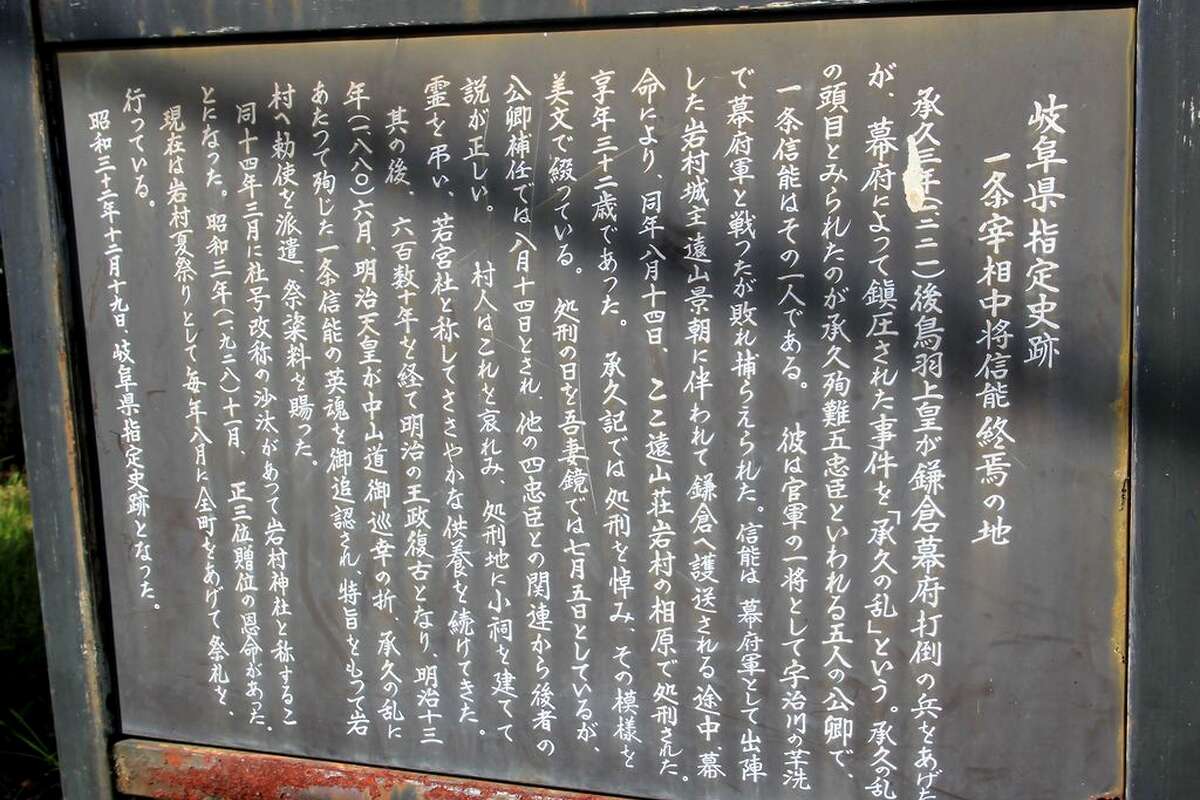 岐阜県指定史跡
一条宰相中将信能終焉の地
承久三年(一二二一)後鳥羽上皇が鎌倉幕府打倒の兵をあげた
が、幕府によって鎮圧された事件を「承久の乱」という。承久の乱
の頭目とみられたのが承久殉難五忠臣といわれる五人の公卿で、
一条信能はその一人である。 彼は官軍の一将として宇治川の芋洗
で幕府軍と戦つたが敗れ捕らえられた。信能は幕府軍として出陣
した岩村城主遠山景朝に伴われて鎌倉へ護送される途中、幕
命により、同年八月十四日、ここ遠山荘岩村の相原で処刑された。
享年三十二歳であった。 承久記では処刑を悼み、その模様を
美文で綴っている。 処刑の日を吾妻鏡では七月五日としているが、
公卿補任では八月十四日とされ、他の四忠臣との関連から後者の
説が正しい。 村人はこれを哀れみ、処刑地に小祠を建てて
霊を弔い、若宮社と称してささやかな供養を続けてきた。
其の後、六百数十年を経て明治の王政復古となり、明治十三
年(一八八〇)六月、明治天皇が中山道御巡幸の折、承久の乱に
あたって殉じた一条信能の英魂を御追認され、特旨をもつて岩
村へ勅使を派遣、祭粢料を賜った。
同十四年三月に社号改称の沙汰があって岩村神社と称するこ
とになった。昭和三年(一九二八)十一月、正三位贈位の恩命があった。
現在は岩村夏祭りとして毎年八月に全町をあげて祭礼を、
行っている。
昭和三十二年十二月十九日、岐阜県指定史跡となった。